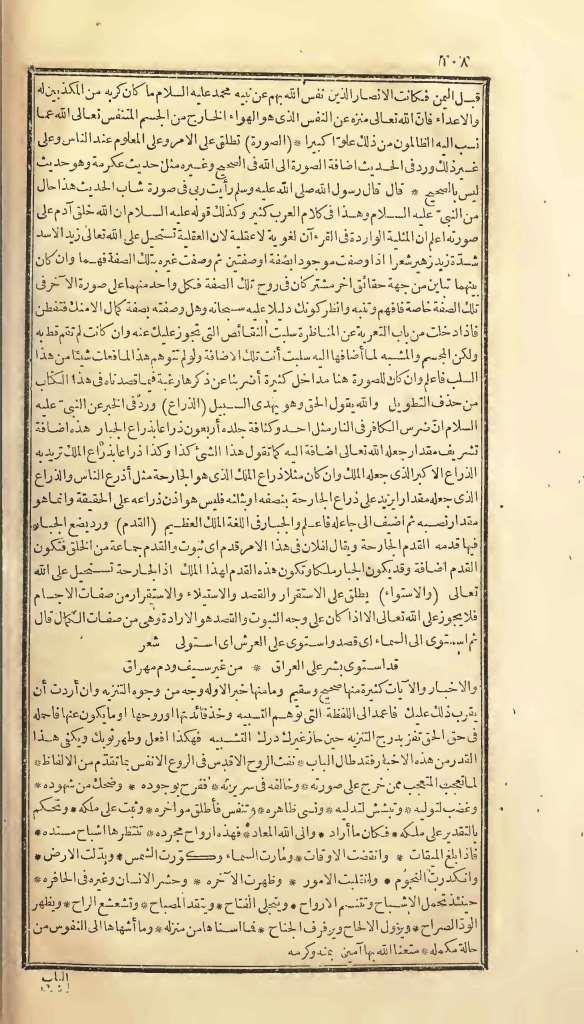 ٢٠٨
قبل اليمن فكانت الانصار الذين نفس الله بهم عن نبيه محمد عليه السلام ما كان كربه من المكذبين له
والاعداء فان الله تعالى منزه عن النفس الذى هو الهواء الخارج من الجسم المتنفس تعالى الله عما
نسب اليه الظالمون من ذلك علوّا كبيرا * (الصورة) تطلق على الامر وعلى المعلوم عند الناس وعلى
غير ذلك ورد فى الحديث اضافة الصورة الى الله فى الصحيح وغيره مثل حديث عكرمة وهو حديث
ليس بالصحيح * قال قال رسول الله صلى الله عليه وسلم رأيت ربى فى صورة شاب الحديث هذا حال
من النبىّ عليه السلام وهذا فى كلام العرب كثير وكذلك قوله عليه السلام ان الله خلق آدم على
صورته اعلم ان المثلية الواردة فى القرءآن لغوية لا عقلية لان العقلية تستحيل على الله تعالى زيد الاسد
شدّة زيد زهير شعرا اذا وصفت موجودا بصفة او صفتين ثم وصفت غيره بتلك الصفة فهما وان كان
بينهما تباين من جهة حقائق أخر مشتركان فى روح تلك الصفة فكل واحد منهما على صورة الآخر فى
تلك الصفة خاصة فافهم وتنبه وانظر كونك دليلا عليه سبحانه وهل وصفته بصفة كمال الا منك فتفطن
فاذا دخلت من باب التعرية عن المناظرة سلبت النقائص التى تجوز عليك عنه وان كانت لم تقم قط به
ولكن المجسم والمشبه لما أضافها اليه سلبت أنت تلك الاضافة ولو لم تتوهم هذا لما فعلت شيئا من هذا
السلب فاعلم وان كان للصورة هنا مداخل كثيرة أضربنا عن ذكرها رغبة فيما قصدناه فى هذا الكتاب
من حذف التطويل والله يقول الحق وهو يهدى السبيل (الذراع) ورد فى الخبر عن النبىّ عليه
السلام انّ ضرس الكافر فى النار مثل احد وكثافة جلده أربعون ذراعا بذراع الجبار هذه اضافة
تشريف مقدار جعله الله تعالى اضافه اليه كما تقول هذا الشئ كذا وكذا ذراعا بذراع الملك تريد به
الذراع الاكبر الذى جعله الملك وان كان مثلا ذراع الملك الذى هو الجارحة مثل أذرع الناس والذراع
الذى جعله مقدارا يزيد على ذراع الجارحة بنصفه او بثلثه فليس هو اذن ذراعه على الحقيقة وانما هو
مقدار نصبه ثم اضيف الى جاعله فاعلم والجبار فى اللغة الملك العظيم (القدم) ورد يضع الجبار
فيها قدمه القدم الجارحة ويقال لفلان فى هذا الامر قدم اى ثبوت والقدم جماعة من الخلق فتكون
القدم اضافة وقد يكون الجبار ملكا وتكون هذه القدم لهذا الملك اذ الجارحة تستحيل على الله
تعالى (والاستواء) يطلق على الاستقرار والقصد والاستيلاء والاستقرار من صفات الاجسام
فلا يجوز على الله تعالى الا اذا كان على وجه الثبوت والقصد هو الارادة وهى من صفات الكمال قال
ثم استوى الى السماء اى قصد واستوى على العرش اى استولى شعر
قد استوى بشر على العراق * من غير سيف ودم مهراق
والاخبار والآيات كثيرة منها صحيح وسقيم وما منها خبر الا وله وجه من وجوه التنزيه وان أردت أن
يقرب ذلك عليك فاعمد الى اللفظة التى توهم التشبيه وخذ فائدتها او روحها او ما يكون عنها فاجعله
فى حق الحق تفز بدرج التنزيه حين حاز غيرك درك التشبيه فهكذا افعل وطهر ثوبك ويكفى هذا
القدر من هذه الاخبار فقد طال الباب * نفث الروح الاقدس فى الروع الانفس بما تقدّم من الالفاظ *
لما تعجب المتعجب ممن خرج على صورته * وخالفه فى سريرته * ففرح بوجوده * وضحك من شهوده *
وغضب لتوليه * وتبشش لتدليه * ونسى ظاهره * وتنفس فأطلق مواخره * وثبت على ملكه * وتحكم
بالتقدير على ملكه * فكان ما أراد * والى الله المعاد * فهذه ارواح مجرده * تنتظرها اشباح مسنده *
فاذا بلغ الميقات * وانقضت الاوقات * ومارت السماء * وكوّرت الشمس * وبدّلت الارض *
وانكدرت النجوم * وانتقلت الامور * وظهرت الآخره * وحشر الانسان وغيره فى الحافره *
حينئذ تحمل الاشباح * وتتنسم الارواح * ويتجلى الفتاح * ويتقد المصباح * وتشعشع الراح * ويظهر
الودّ الصراح * ويزول الالحاح * ويرفرف الجناح * فما اسناها من منزله * وما أشهاها الى النفوس من
حالة مكمله * متعنا الله بها آمين بمنه وكرمه
الباب